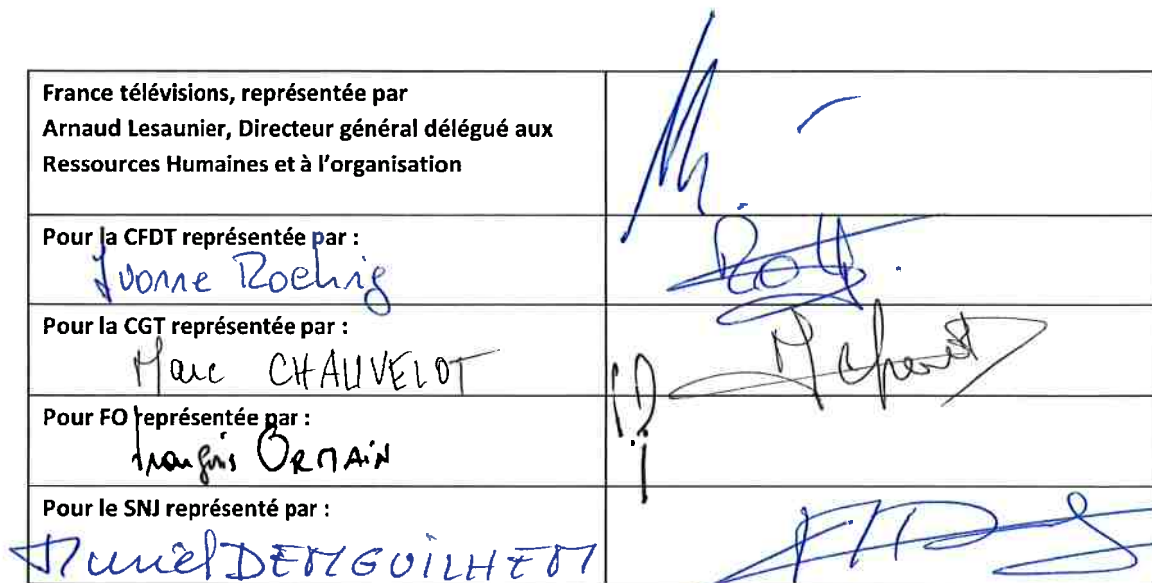 France télévisions, représentée par
Arnaud Lesaunier, Directeur général délégué aux
Ressources Humaines et à l'organisation
Pour la CFDT représentée par :
Yvonne Roehrig
Pour la CGT représentée par :
Marc CHAUVELOT
Pour FO représentée par :
François ORMAIN
Pour le SNJ représenté par :
Muriel DEMGUILHEM